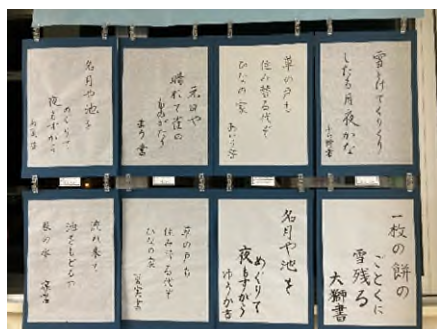 雪とけてくりくり
したる月夜かな
草の戸も
住み替る代ぞ
ひなの家
元日や
晴れて雀の
ものがたり
名月や池を
めぐりて
夜もすがら
一枚の餅の
ごとくに
雪残る
大獅書
名月や池を
めぐりて
夜もすがら
ゆうか書
草の戸も
住み替る代ぞ
ひなの家
流れ来て
池をもどるや
春の水